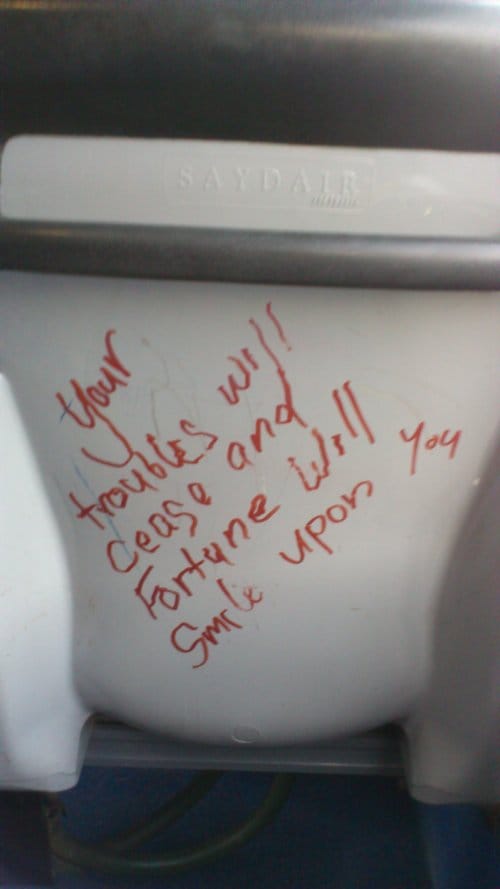 SAYDAIR
Your
troubles will
cease and
Fortune will
Smile upon you